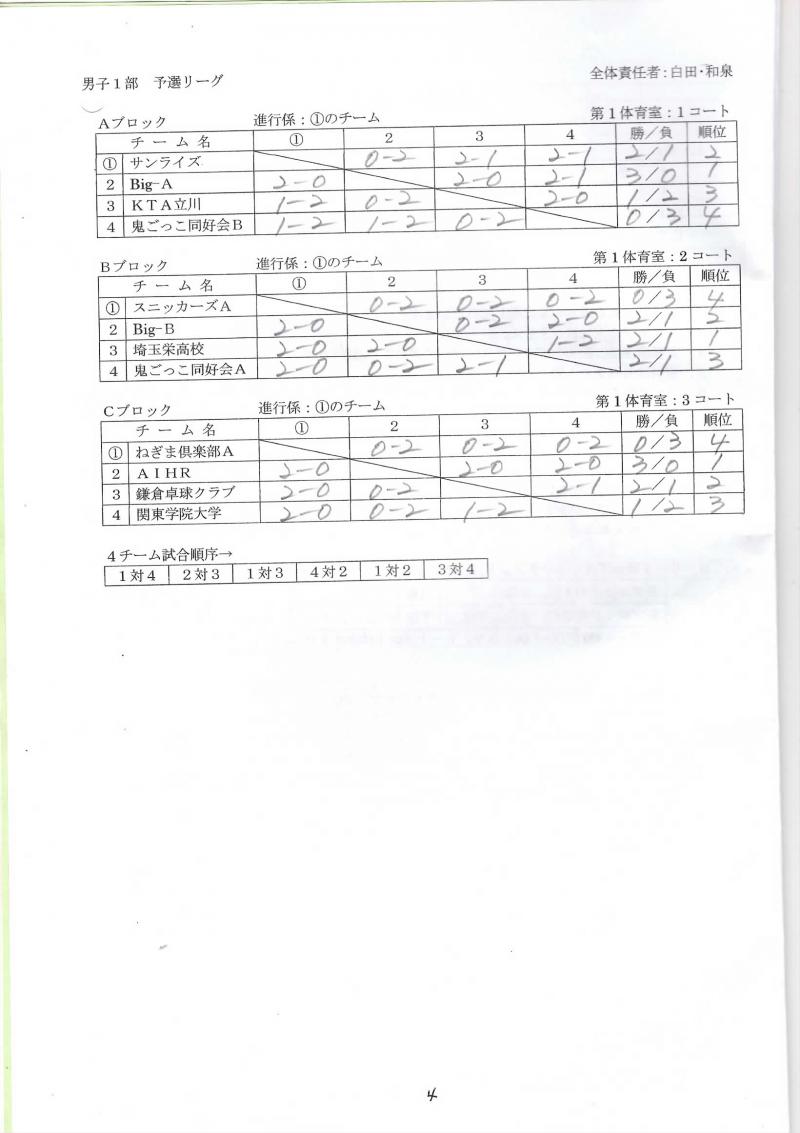 全体責任者：白田・和泉
男子1部　予選リーグ
Aブロック　進行係：①のチーム　第1体育室：1コート
チーム名　①　2　3　4　勝／負　順位
①　サンライズ　0-2　2-1　2-1　2/1　2
2　Big-A　2-0　2-0　2-1　3/0　1
3　KTA立川　1-2　0-2　2-0　1/2　3
4　鬼ごっこ同好会B　1-2　1-2　0-2　0/3　4
Bブロック　進行係：①のチーム　第1体育室：2コート
チーム名　①　2　3　4　勝／負　順位
①　スニッカーズA　0-2　0-2　0-2　0/3　4
2　Big-B　2-0　0-2　2-0　2/1　2
3　埼玉栄高校　2-0　2-0　1-2　2/1　1
4　鬼ごっこ同好会A　2-0　0-2　2-1　2/1　3
Cブロック　進行係：①のチーム　第1体育室：3コート
チーム名　①　2　3　4　勝／負　順位
①　ねぎま倶楽部A　0-2　0-2　0-2　0/3　4
2　AIHR　2-0　2-0　2-0　3/0　1
3　鎌倉卓球クラブ　2-0　0-2　2-1　2/1　2
4　関東学院大学　2-0　0-2　1-2　1/2　3
4チーム試合順序→
1対4　2対3　1対3　4対2　1対2　3対4
4